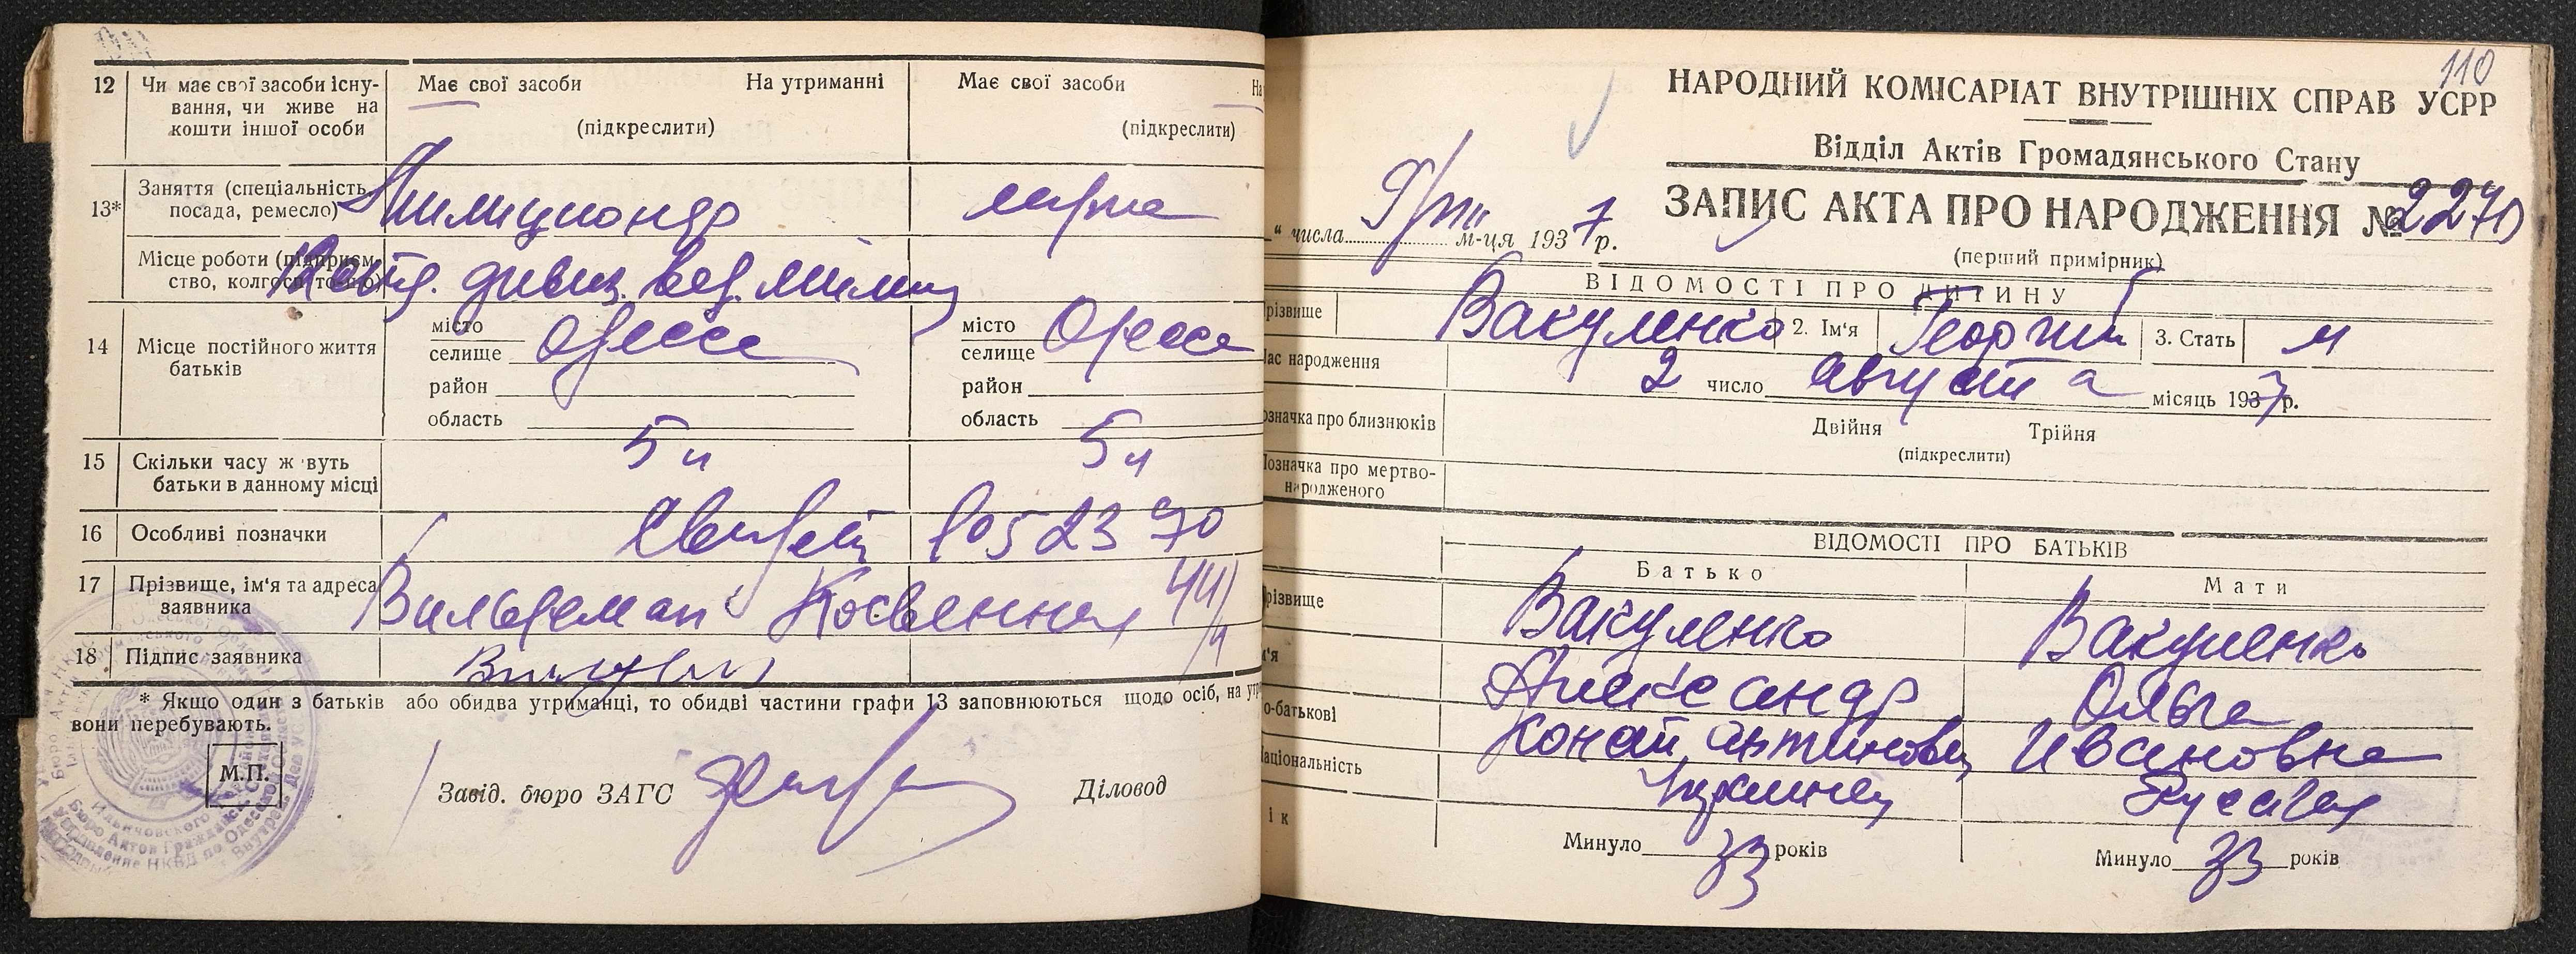 12 Чи має свої засоби існу-
вання, чи живе на
кошти іншої особи
Має свої засоби На утриманні
(підкреслити)
Має свої засоби На
(підкреслити)
13* Заняття (спеціальність
посада, ремесло)
Милиционер
Місце роботи (підприєм-
ство, колгосп тощо)
дивиз. вед. милиц
14 Місце постійного життя
батьків
місто
селище Одесса
район
область
місто
селище Одесса
район
область
15 Скільки часу живуть
батьки в данному місці
5 л
5 л
16 Особливі позначки
052370
17 Прізвище, ім'я та адреса
заявника
Вильдеман Косвенная 44/
18 Підпис заявника
* Якщо один з батьків або обидва утриманці, то обидві частини графи 13 заповнюються щодо осіб, на утри
вони перебувають.
М.П.
Завід. бюро ЗАГС
Діловод
110
НАРОДНИЙ КОМІСАРІАТ ВНУТРІШНІХ СПРАВ УСРР
Відділ Актів Громадянського Стану
ЗАПИС АКТА ПРО НАРОДЖЕННЯ № 2270
(перший примірник)
" числа 9/VIII м-ця 1937 р.
ВІДОМОСТІ ПРО ДИТИНУ
різвище Вакуленко 2. Ім'я Георгий 3. Стать м
час народження 2 число августа місяць 1937 р.
означка про близнюків Двійня Трійня
(підкреслити)
Позначка про мертво-
народженого
ВІДОМОСТІ ПРО БАТЬКІВ
Батько Мати
різвище Вакуленко Вакуленко
м'я Александр Ольга
о-батькові Констянтинович Ивановна
аціональність Украинец Русская
ік Минуло 33 років Минуло 33 років